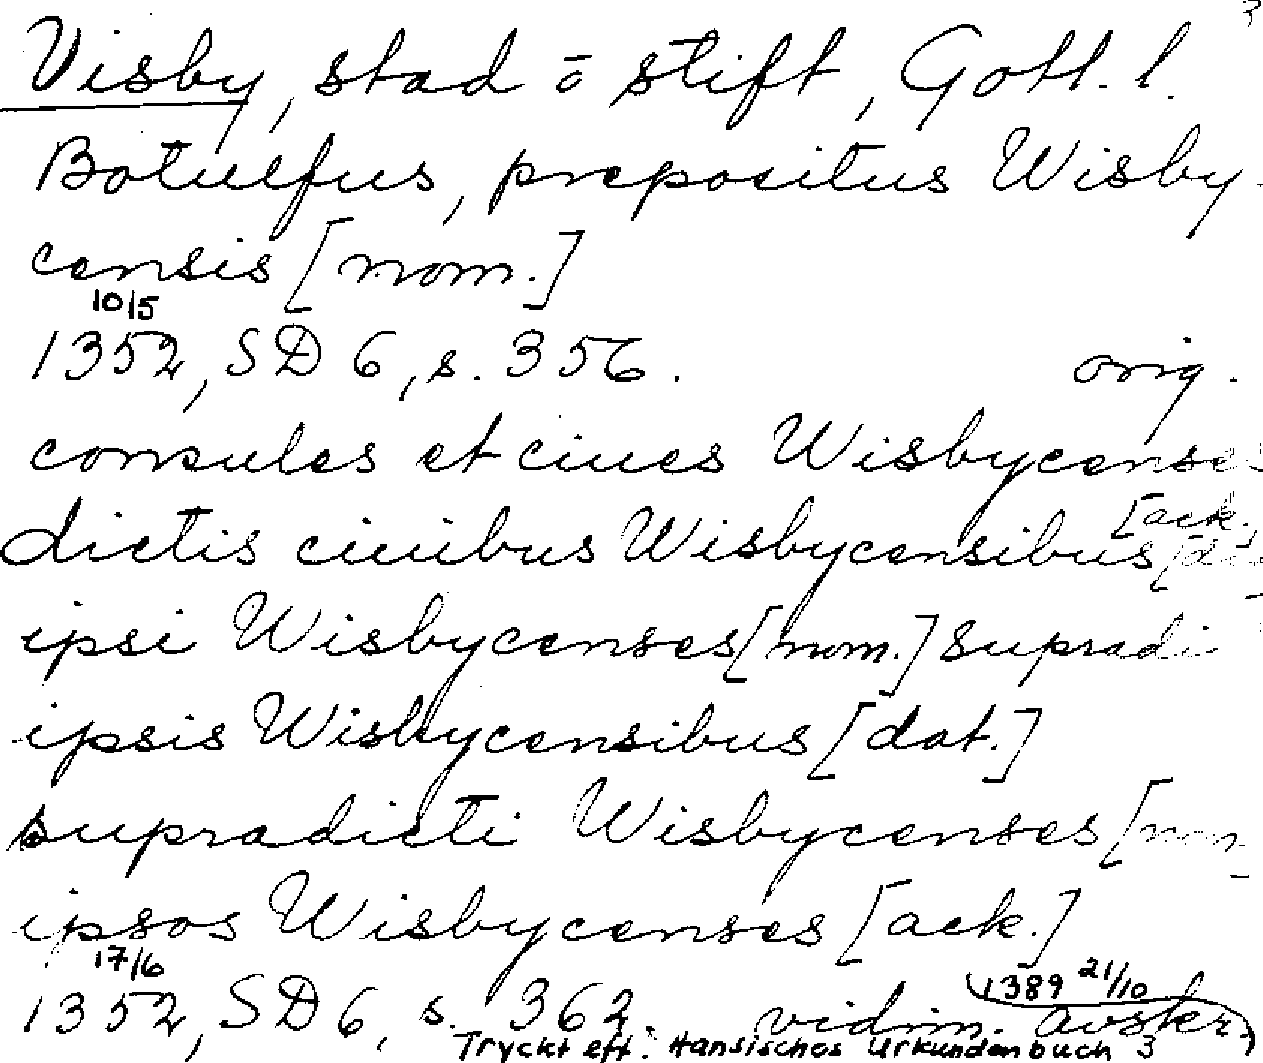 Visby, stad o stift, Gotl. l.
Botulfus, prepositus Wisby-
censis [nom.]
10/5
1352, SD 6, s. 356. orig.
consules et ciues Wisbycenses
[ack.
dictis ciuibus Wisbycensibus
ipsi Wisbycenses [nom.] Supradi
ipsis Wisbycensibus [dat.]
supradicti Wisbycenses [nom
ipsos Wisbycenses [ack.]
17/6 1389 21/10
1352, SD 6, s. 362. vidim. avskr.
Tryckt eft. Hansisches Urkundenbuch 3